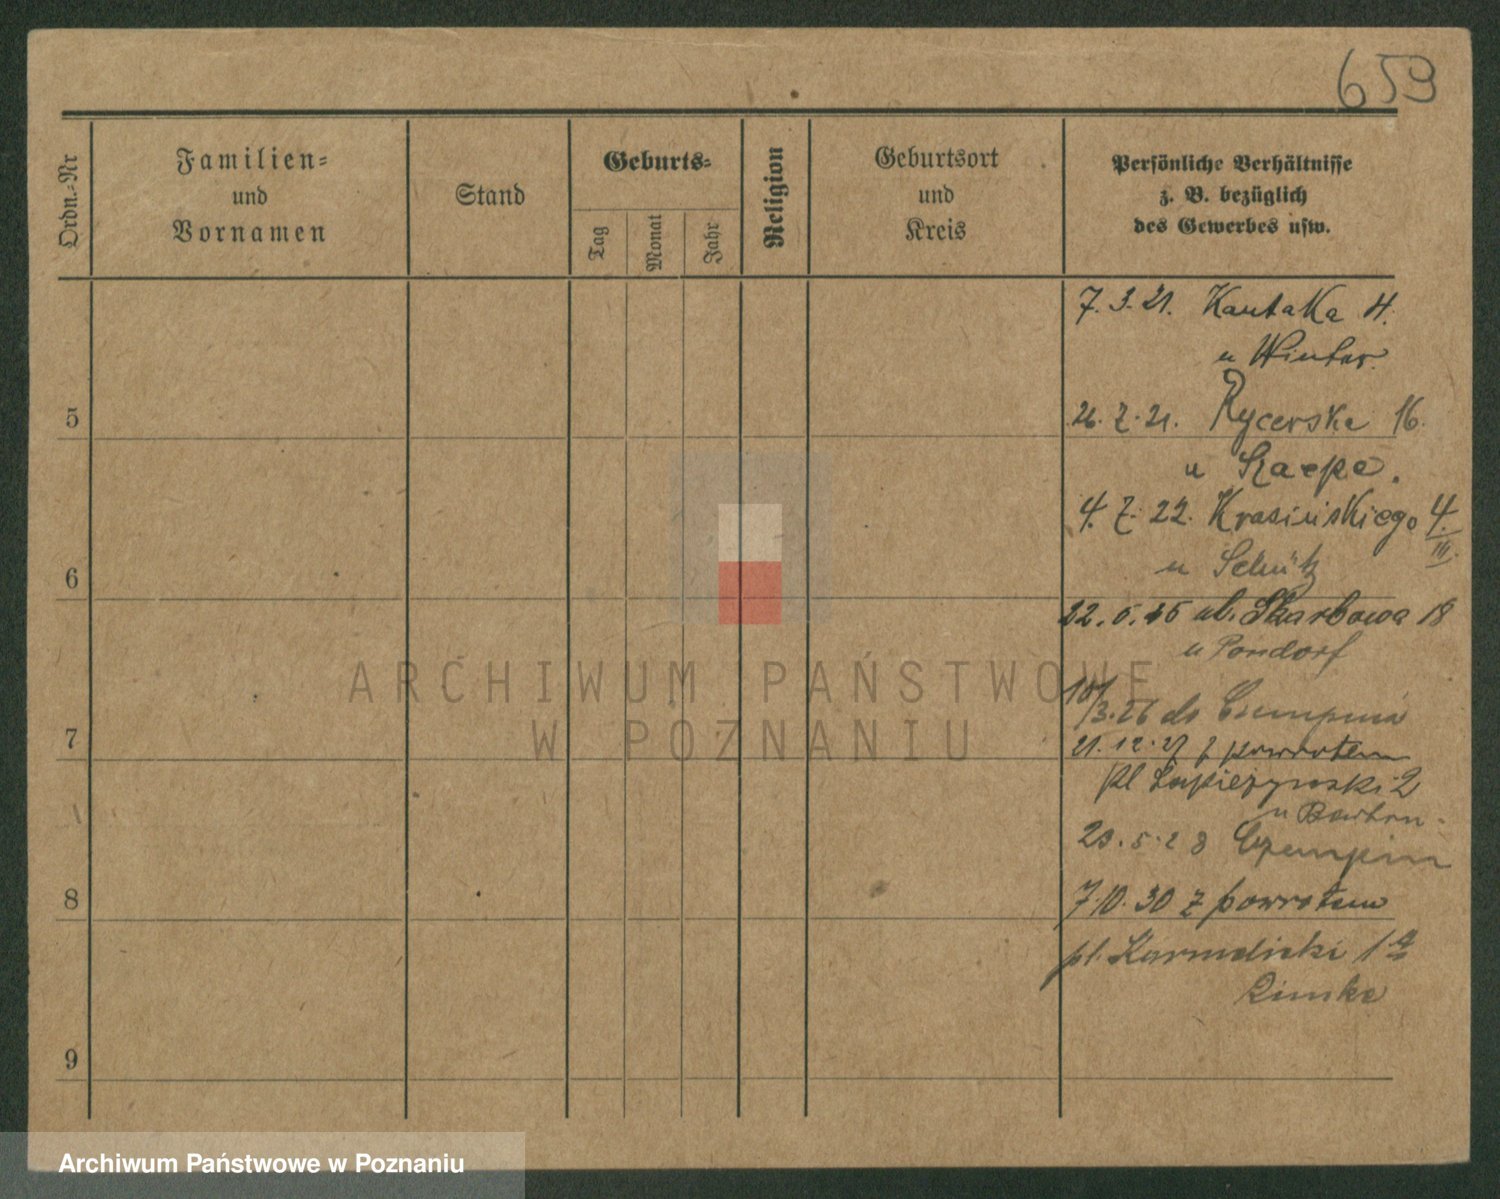 659
Ordn.-Nr
Familien-
und
Vornamen
Stand
Geburts-
Tag
Monat
Jahr
Religion
Geburtsort
und
Kreis
Persönliche Verhältnisse
z. B. bezüglich
des Gewerbes usw.
7. 3. 21. Kantaka 4.
u Winter.
5
26. 7. 21. Rycerska 16.
u
4. 7. 22. Krasińskiego 4.
III.
u Schütz
6
22. 5. 25 ul. Skarbowa 18
u Pondorf
3. 26 do Czempinia
7
21. 12. 27 z powrotem
pl Sapieżynski 2
u
23. 5. 28 Czempin
8
7.10. 30 z powrotem
pl. Karmelicki 1a
Zimke
9
ARCHIWUM PAŃSTWOWE
W POZNANIU
Archiwum Państwowe w Poznaniu